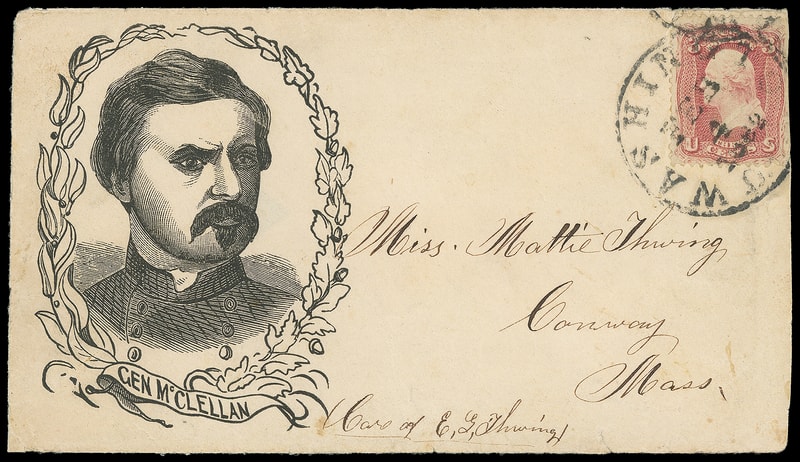 GEN McCLELLAN
WASHIN
3 3
U CENTS S
Miss. Mattie Thwing
Conway
Mass.
(Care of E, G, Thwing)